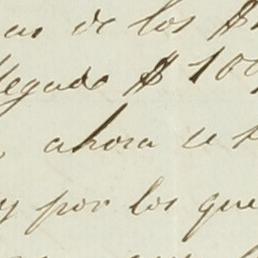 de los $
llegado $ 100
ahora
y por los que